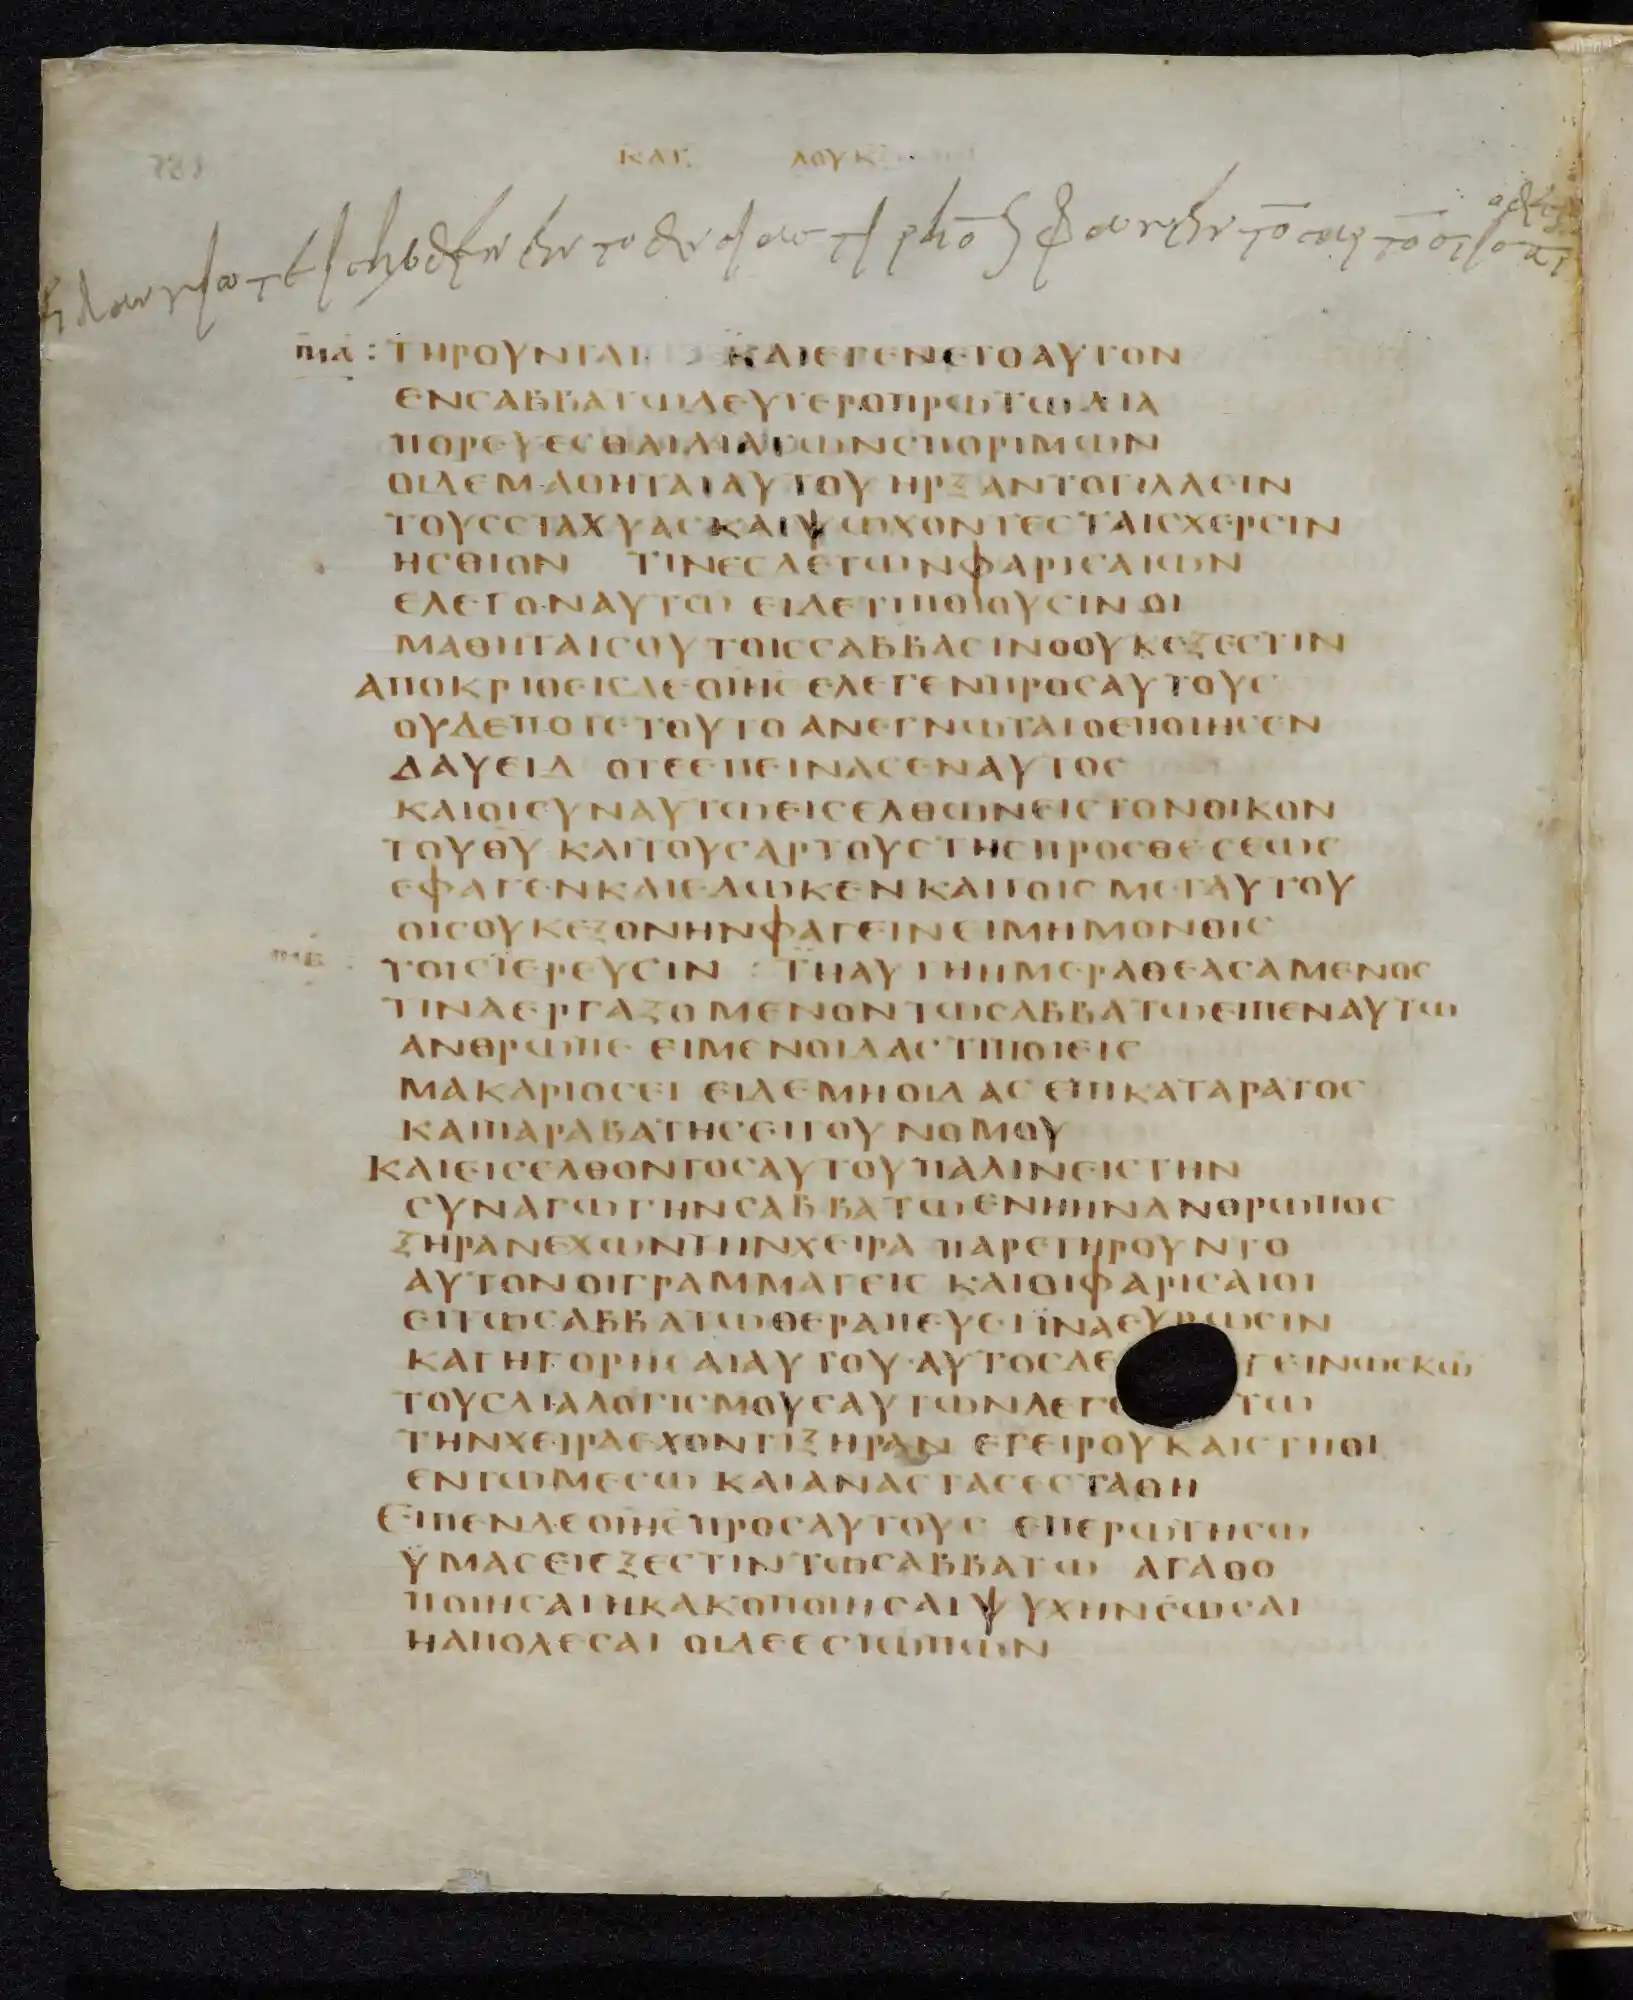 ΚΑΤ ΛΟΥΚ
ΜΑ : ΤΗΡΟΥΝΤΑΙ ΚΑΙΕΓΕΝΕΤΟΑΥΤΟΝ
ΕΝΣΑΒΒΑΤΩΔΕΥΤΕΡΟΠΡΩΤΩΔΙΑ
ΠΟΡΕΥΕΣΘΑΙΔΙΑΤΩΝΣΠΟΡΙΜΩΝ
ΟΙΔΕΜΑΘΗΤΑΙΑΥΤΟΥΗΡΞΑΝΤΟΤΙΛΛΕΙΝ
ΤΟΥΣΣΤΑΧΥΑΣΚΑΙΨΩΧΟΝΤΕΣΤΑΙΣΧΕΡΣΙΝ
ΗΣΘΙΟΝ ΤΙΝΕΣΔΕΤΩΝΦΑΡΙΣΑΙΩΝ
ΕΛΕΓΟΝΑΥΤΩ ΕΙΔΕΤΙΠΟΙΟΥΣΙΝΟΙ
ΜΑΘΗΤΑΙΣΟΥΤΟΙΣΣΑΒΒΑΣΙΝΟΟΥΚΕΞΕΣΤΙΝ
ΑΠΟΚΡΙΘΕΙΣΔΕΟΙΗΣ ΕΛΕΓΕΝΠΡΟΣΑΥΤΟΥΣ
ΟΥΔΕΠΟΤΕΤΟΥΤΟ ΑΝΕΓΝΩΤΑΙΟΕΠΟΙΗΣΕΝ
ΔΑΥΕΙΔ ΟΤΕΕΠΕΙΝΑΣΕΝΑΥΤΟΣ
ΚΑΙΟΙΣΥΝΑΥΤΩΕΙΣΕΛΘΩΝΕΙΣΤΟΝΟΙΚΟΝ
ΤΟΥΘΥ ΚΑΙΤΟΥΣΑΡΤΟΥΣΤΗΣΠΡΟΣΘΕΣΕΩΣ
ΕΦΑΓΕΝΚΑΙΕΔΩΚΕΝΚΑΙΤΟΙΣΜΕΤΑΥΤΟΥ
ΟΙΣΟΥΚΕΞΟΝΗΝΦΑΓΕΙΝΕΙΜΗΜΟΝΟΙΣ
ΜΒ : ΤΟΙΣΙΕΡΕΥΣΙΝ : ΤΗΑΥΤΗΗΜΕΡΑΘΕΑΣΑΜΕΝΟΣ
ΤΙΝΑΕΡΓΑΖΟΜΕΝΟΝΤΩΣΑΒΒΑΤΩΕΙΠΕΝΑΥΤΩ
ΑΝΘΡΩΠΕ ΕΙΜΕΝΟΙΔΑΣΤΙΠΟΙΕΙΣ
ΜΑΚΑΡΙΟΣΕΙ ΕΙΔΕΜΗΟΙΔΑΣ ΕΠΙΚΑΤΑΡΑΤΟΣ
ΚΑΙΠΑΡΑΒΑΤΗΣΕΙΤΟΥΝΟΜΟΥ
ΚΑΙΕΙΣΕΛΘΟΝΤΟΣΑΥΤΟΥΠΑΛΙΝΕΙΣΤΗΝ
ΣΥΝΑΓΩΓΗΝΣΑΒΒΑΤΩΕΝΗΗΝΑΝΘΡΩΠΟΣ
ΞΗΡΑΝΕΧΩΝΤΗΝΧΕΙΡΑ ΠΑΡΕΤΗΡΟΥΝΤΟ
ΑΥΤΟΝΟΙΓΡΑΜΜΑΤΕΙΣ ΚΑΙΟΙΦΑΡΙΣΑΙΟΙ
ΕΙΤΩΣΑΒΒΑΤΩΘΕΡΑΠΕΥΕΙΪΝΑΕΥΡΩΣΙΝ
ΚΑΤΗΓΟΡΗΣΑΙΑΥΤΟΥ·ΑΥΤΟΣΔΕ ΓΕΙΝΩΣΚΩ
ΤΟΥΣΔΙΑΛΟΓΙΣΜΟΥΣΑΥΤΩΝΛΕΓΕ ΤΩ
ΤΗΝΧΕΙΡΑΕΧΟΝΤΙΞΗΡΑΝ ΕΓΕΙΡΟΥΚΑΙΣΤΗΘΙ
ΕΝΤΩΜΕΣΩ ΚΑΙΑΝΑΣΤΑΣΕΣΤΑΘΗ
ΕΙΠΕΝΔΕΟΙΗΣΠΡΟΣΑΥΤΟΥΣ ΕΠΕΡΩΤΗΣΩ
ΫΜΑΣΕΙΕΞΕΣΤΙΝΤΩΣΑΒΒΑΤΩ ΑΓΑΘΟ
ΠΟΙΗΣΑΙΗΚΑΚΟΠΟΙΗΣΑΙΨΥΧΗΝΣΩΣΑΙ
ΗΑΠΟΛΕΣΑΙ ΟΙΔΕΕΣΙΩΠΩΝ